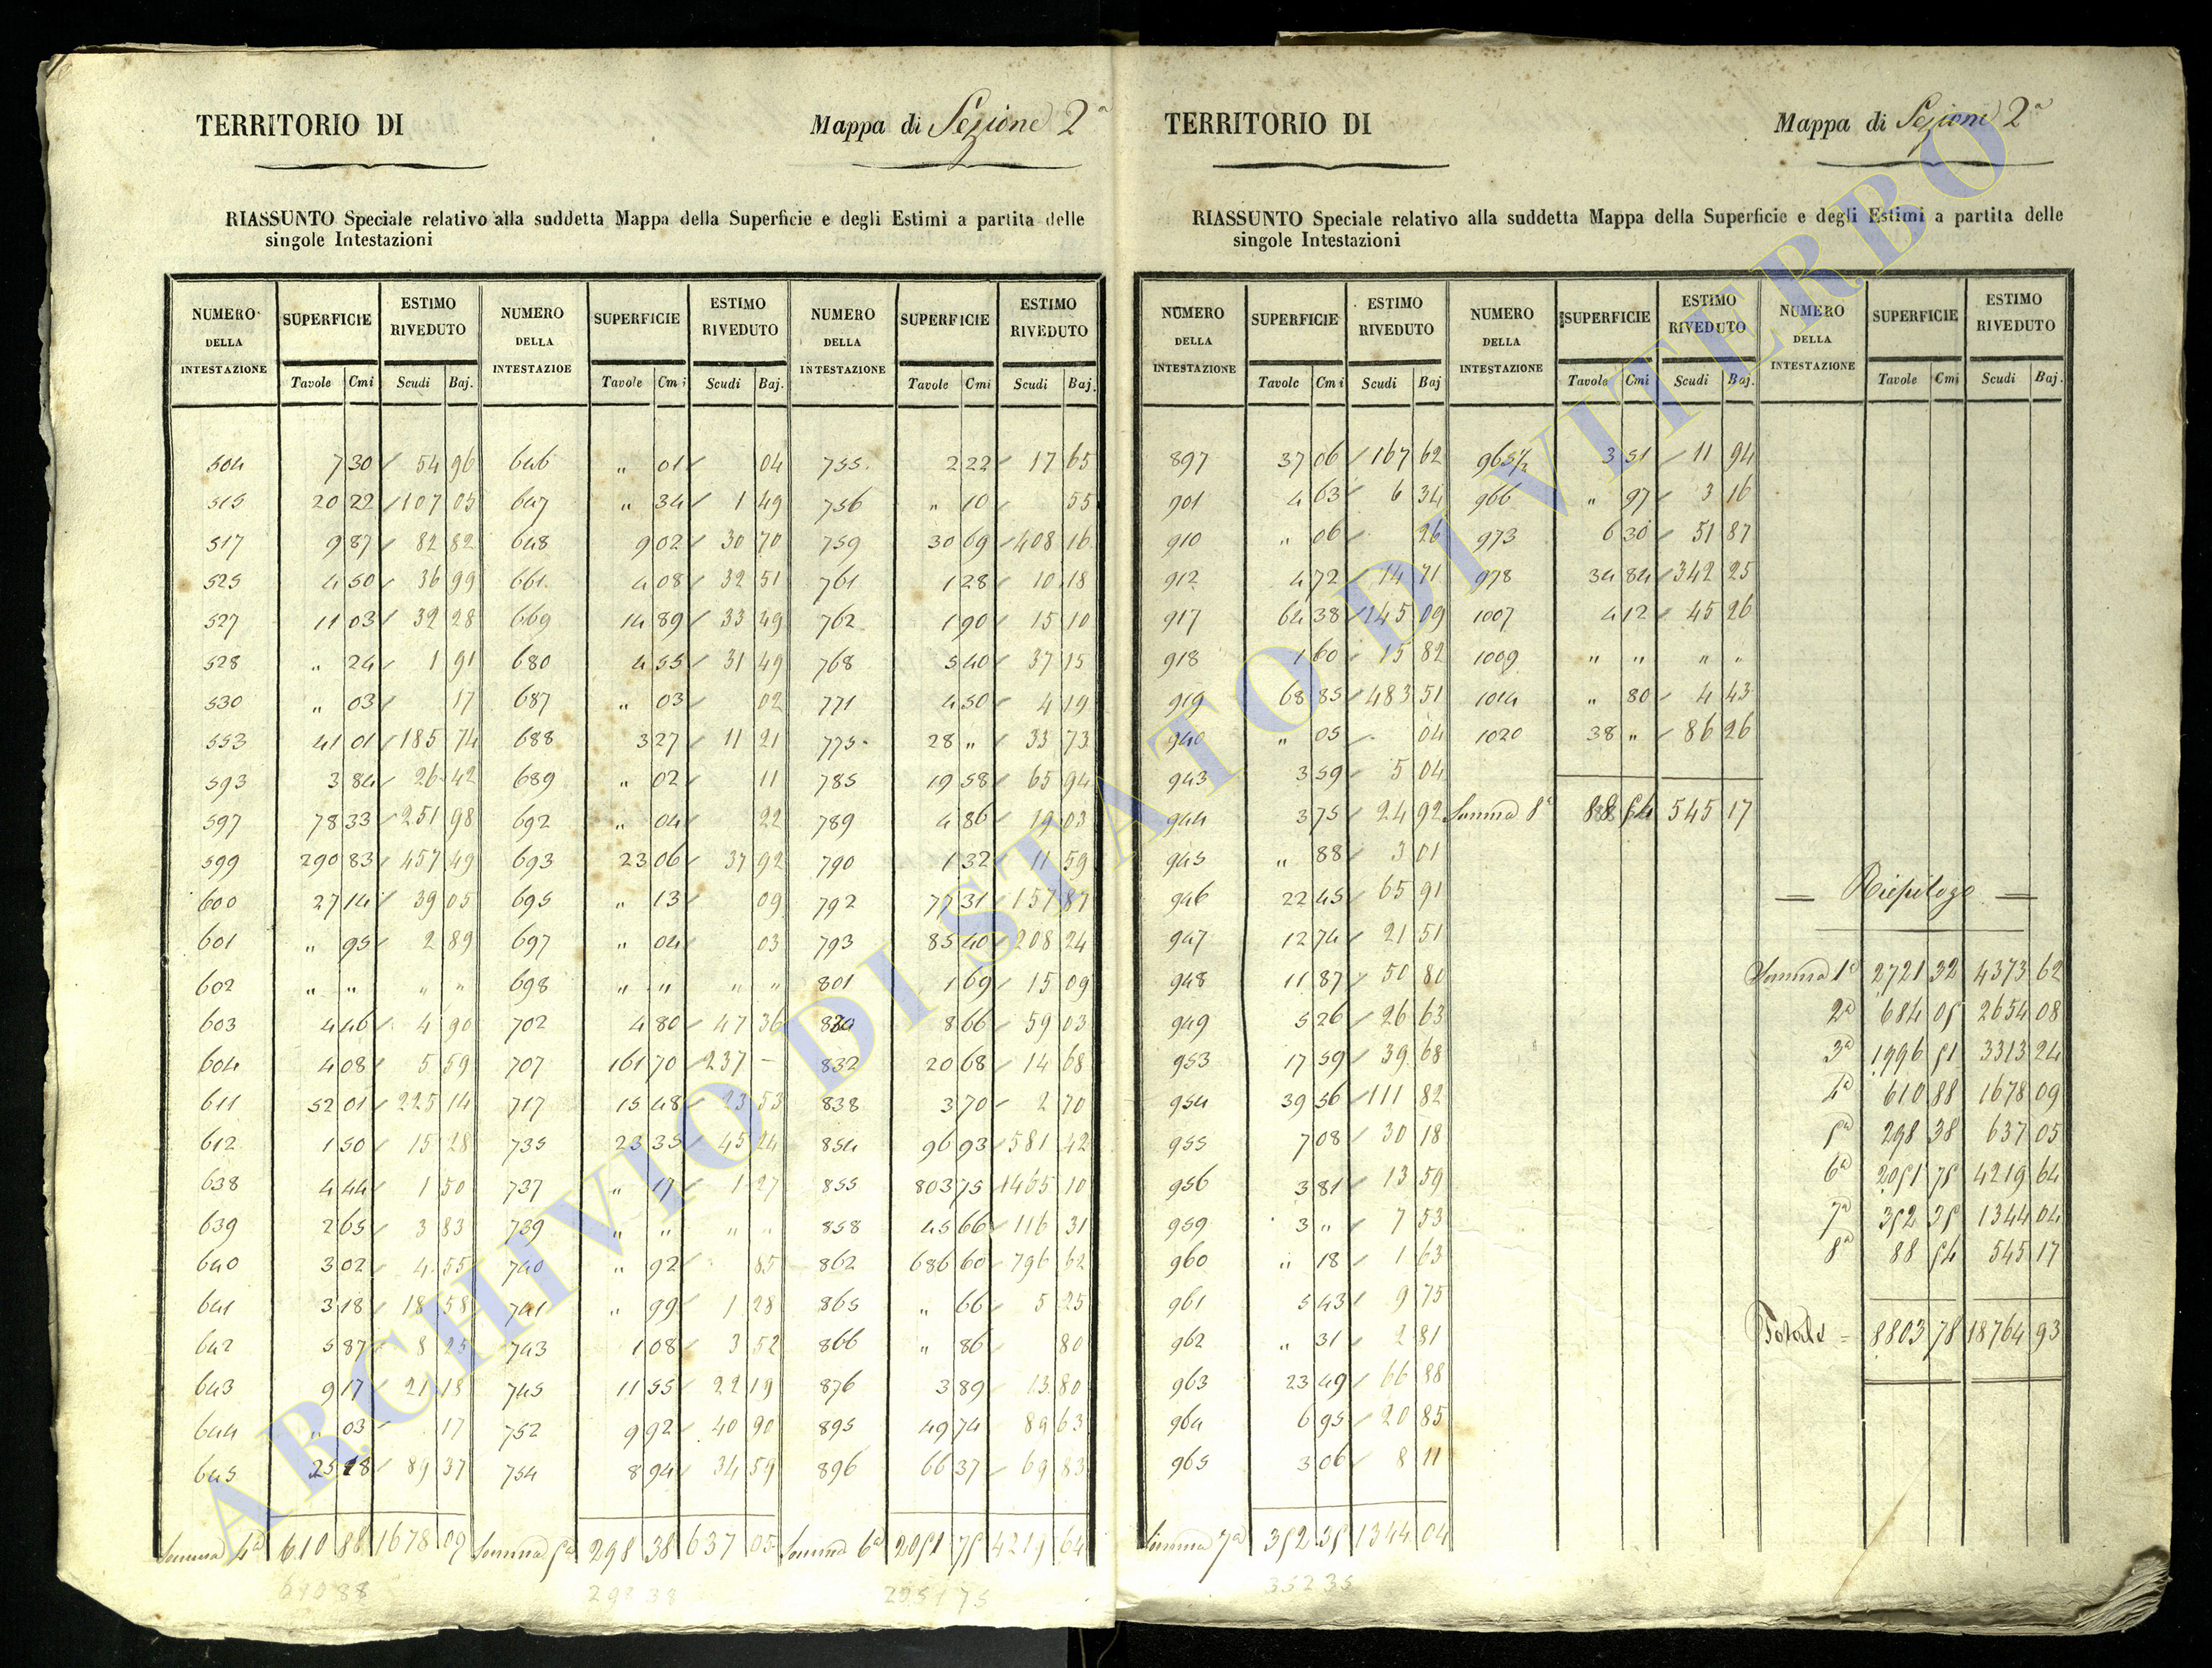 TERRITORIO DI
Mappa di Sezione 2ª
RIASSUNTO Speciale relativo alla suddetta Mappa della Superficie e degli Estimi a partita delle
singole Intestazioni
NUMERO DELLA INTESTAZIONE SUPERFICIE ESTIMO RIVEDUTO NUMERO DELLA INTESTAZIOE SUPERFICIE ESTIMO RIVEDUTO NUMERO DELLA INTESTAZIONE SUPERFICIE ESTIMO RIVEDUTO
Tavole Cmi Scudi Baj. Tavole Cmi Scudi Baj. Tavole Cmi Scudi Baj.
504 7 30 54 96 646 " 01 04 755 2 22 17 65
515 20 22 107 05 647 " 34 1 49 756 " 10 55
517 9 87 82 82 648 9 02 30 70 759 30 69 408 16
525 4 50 36 99 661 4 08 32 51 761 1 28 10 18
527 11 03 32 28 669 14 89 33 49 762 1 90 15 10
528 " 24 1 91 680 4 55 31 49 768 5 40 37 15
530 " 03 17 687 " 03 02 771 4 50 4 19
553 41 01 185 74 688 3 27 11 21 775 28 " 33 73
593 3 84 26 42 689 " 02 11 785 19 58 65 94
597 78 33 251 98 692 " 04 22 789 4 86 19 03
599 290 83 457 49 693 23 06 37 92 790 1 32 11 59
600 27 14 39 05 695 " 13 09 792 77 31 157 87
601 " 95 2 89 697 " 04 03 793 85 40 208 24
602 " " " " 698 " " " " 801 1 69 15 09
603 4 46 4 90 702 4 80 47 36 8 66 59 03
604 4 08 5 59 707 161 70 237 – 832 20 68 14 68
611 52 01 225 14 717 15 48 23 53 838 3 70 2 70
612 1 50 15 28 735 23 35 45 24 854 96 93 581 42
638 4 44 1 50 737 " 17 1 27 855 803 75 1465 10
639 2 65 3 83 739 " " " " 858 45 66 116 31
640 3 02 4 55 740 " 92 85 862 686 60 796 62
641 3 18 18 58 741 " 99 1 28 865 " 66 5 25
642 5 87 8 25 743 1 08 3 52 866 " 86 80
643 9 17 21 18 745 11 55 22 19 876 3 89 13 80
644 " 03 17 752 9 92 40 90 895 49 74 89 63
645 25 18 89 37 754 8 94 34 59 896 66 37 69 83
Somma 4ª 610 88 1678 09 Somma 5ª 298 38 637 05 Somma 6ª 2051 75 4219 64
610 88 298 38 2051 75
TERRITORIO DI
Mappa di Sezione 2ª
RIASSUNTO Speciale relativo alla suddetta Mappa della Superficie e degli Estimi a partita delle
singole Intestazioni
NUMERO DELLA INTESTAZIONE SUPERFICIE ESTIMO RIVEDUTO NUMERO DELLA INTESTAZIONE SUPERFICIE ESTIMO RIVEDUTO NUMERO DELLA INTESTAZIONE SUPERFICIE ESTIMO RIVEDUTO
Tavole Cmi Scudi Baj Tavole Cmi Scudi Baj. Tavole Cmi Scudi Baj.
897 37 06 167 62 965½ 3 51 11 94
901 4 63 6 34 966 " 97 3 16
910 " 06 26 973 6 30 51 87
912 4 72 14 71 978 34 84 342 25
917 64 38 145 09 1007 4 12 45 26
918 1 60 15 82 1009 " " " "
919 68 85 483 51 1014 " 80 4 43
940 " 05 04 1020 38 " 86 26
943 3 59 5 04
944 3 75 24 92 Somma 8ª 88 54 545 17
945 " 88 3 01
946 22 45 65 91 Riepilogo
947 12 74 21 51
948 11 87 50 80 Somma 1ª 2721 32 4373 62
949 5 26 26 63 2ª 684 05 2654 08
953 17 59 39 68 3ª 1996 51 3313 24
954 39 56 111 82 4ª 610 88 1678 09
955 7 08 30 18 5ª 298 38 637 05
956 3 81 13 59 6ª 2051 75 4219 64
959 3 " 7 53 7ª 352 35 1344 04
960 " 18 1 63 8ª 88 54 545 17
961 5 43 9 75
962 " 31 2 81 Totale = 8803 78 18764 93
963 23 49 66 88
964 6 95 20 85
965 3 06 8 11
Somma 7ª 352 35 1344 04
352 35
ARCHIVIO DI STATO DI VITERBO